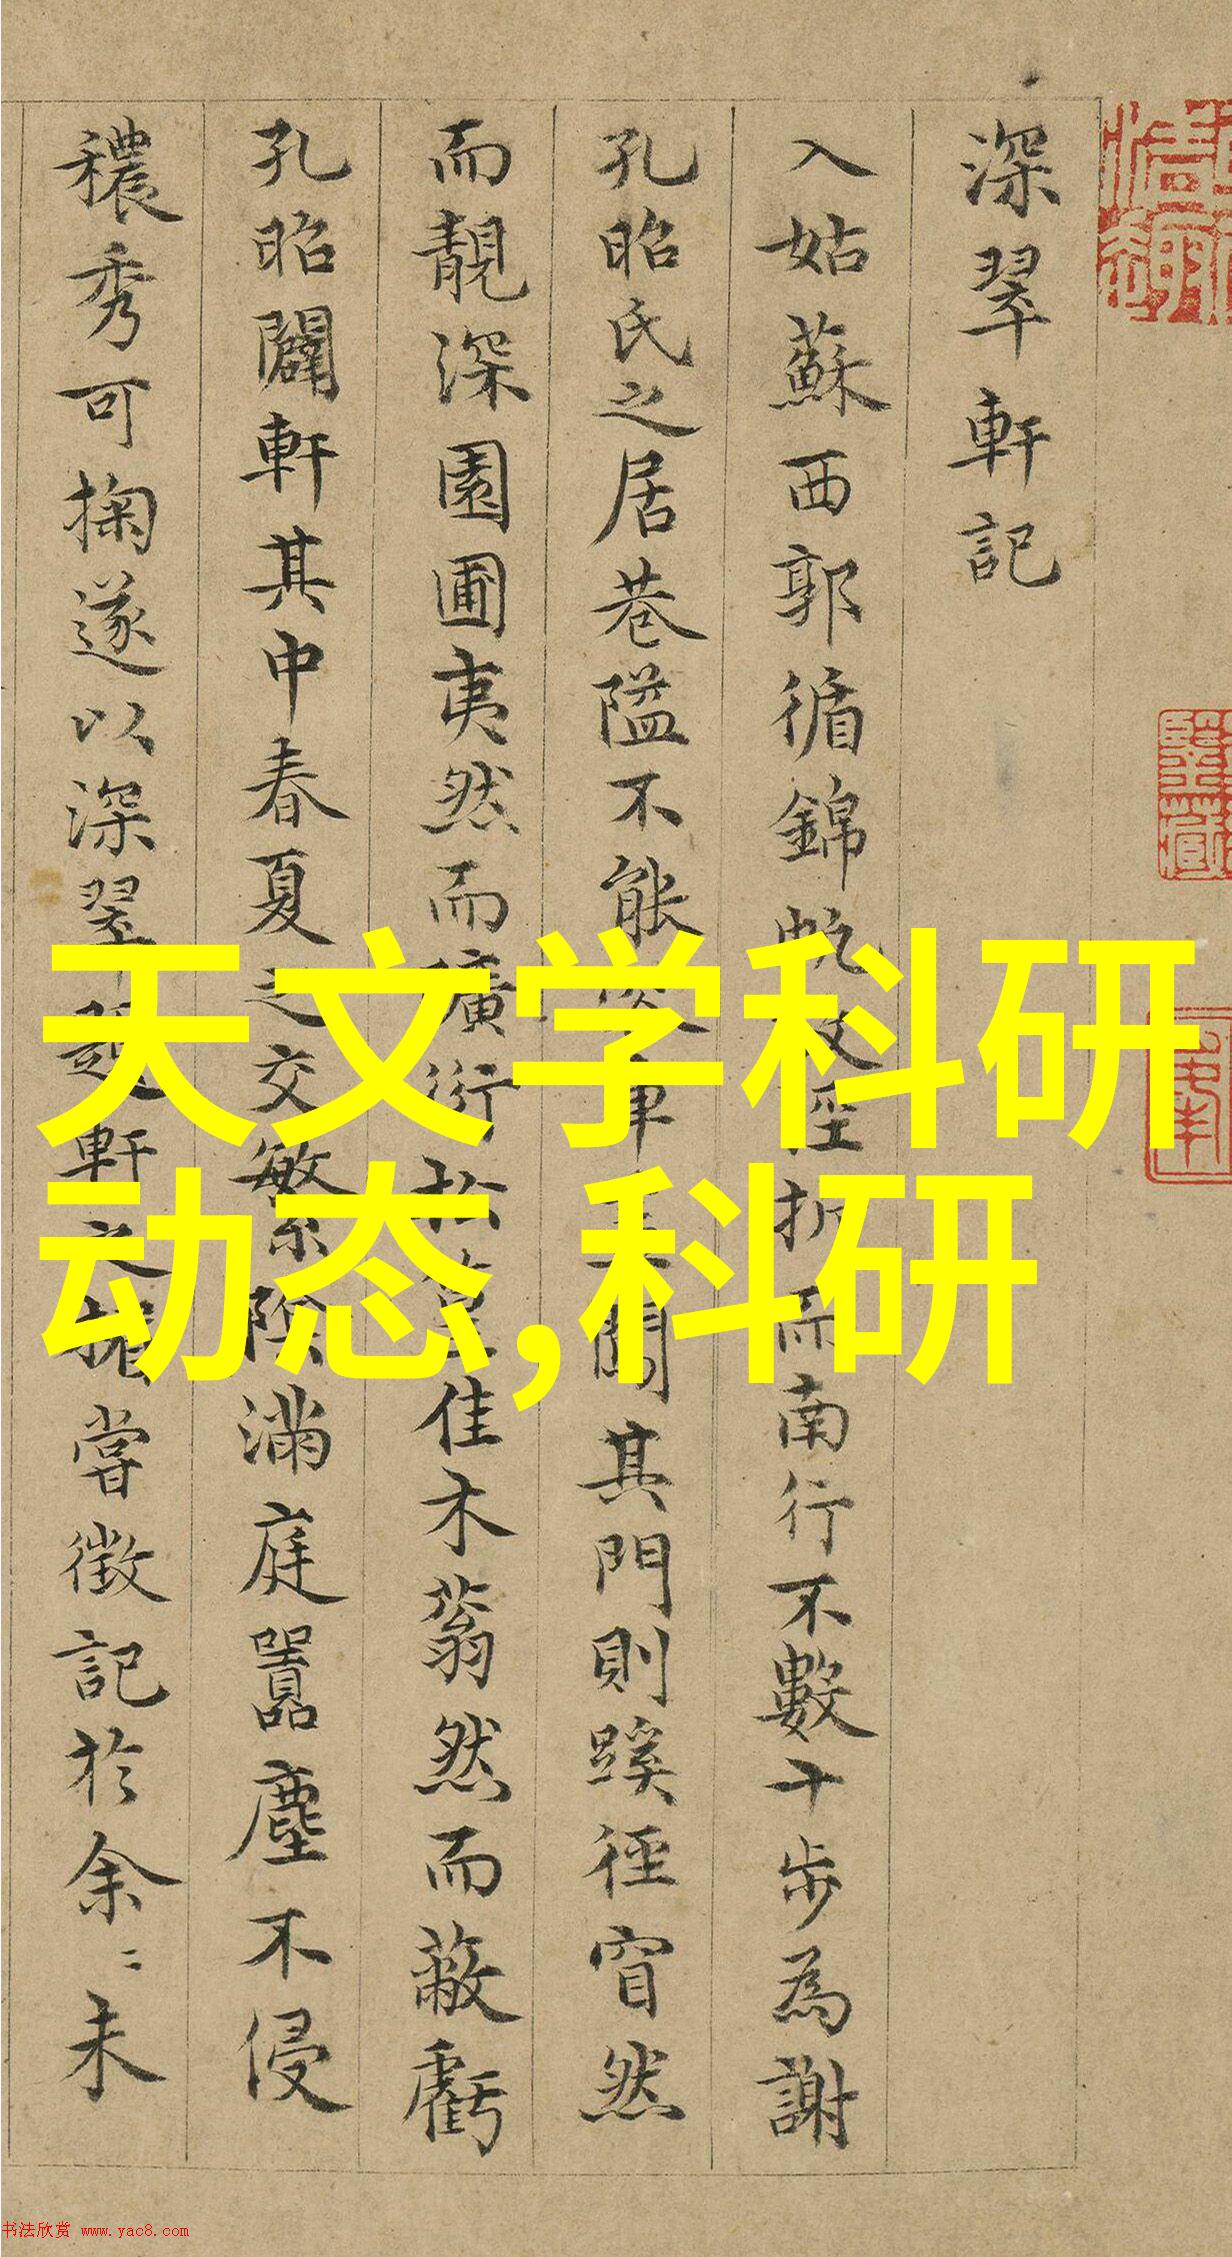 深翠軒記
入姑蘇西郭循錦帆涇折而南行不數十步為謝
孔昭氏之居巷隘不能容車其門則蹊徑窅然
而靚深園圃夷然而廣衍松篁佳木蓊然而蔽虧
孔昭闢軒其中春夏之交繁陰滿庭囂塵不侵
穠秀可掬遂以深翠題軒之楣嘗徵記於余〻未
天文学科研
动态,科研
书法欣赏 www.yac8.com